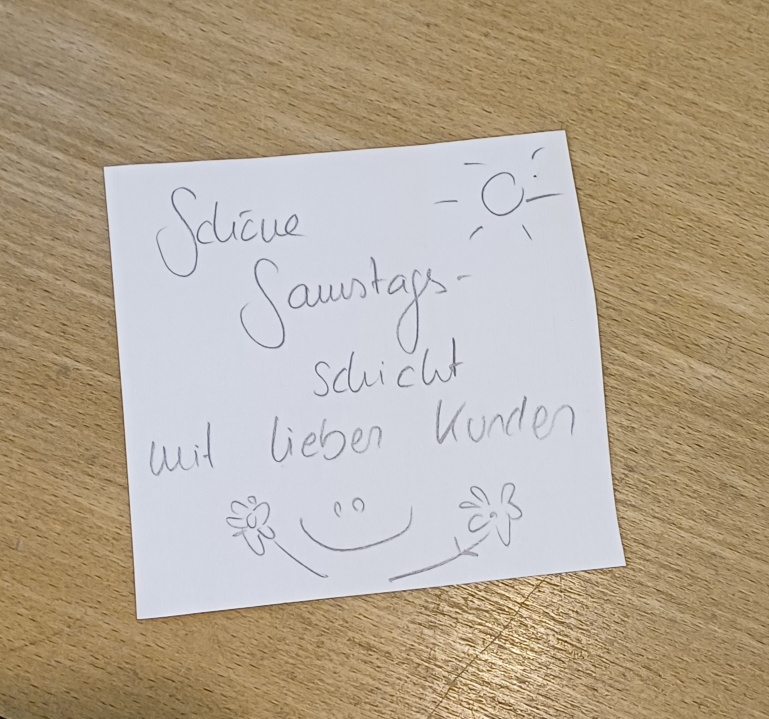 Schöne
Samstags-
schicht
mit lieben Kunden